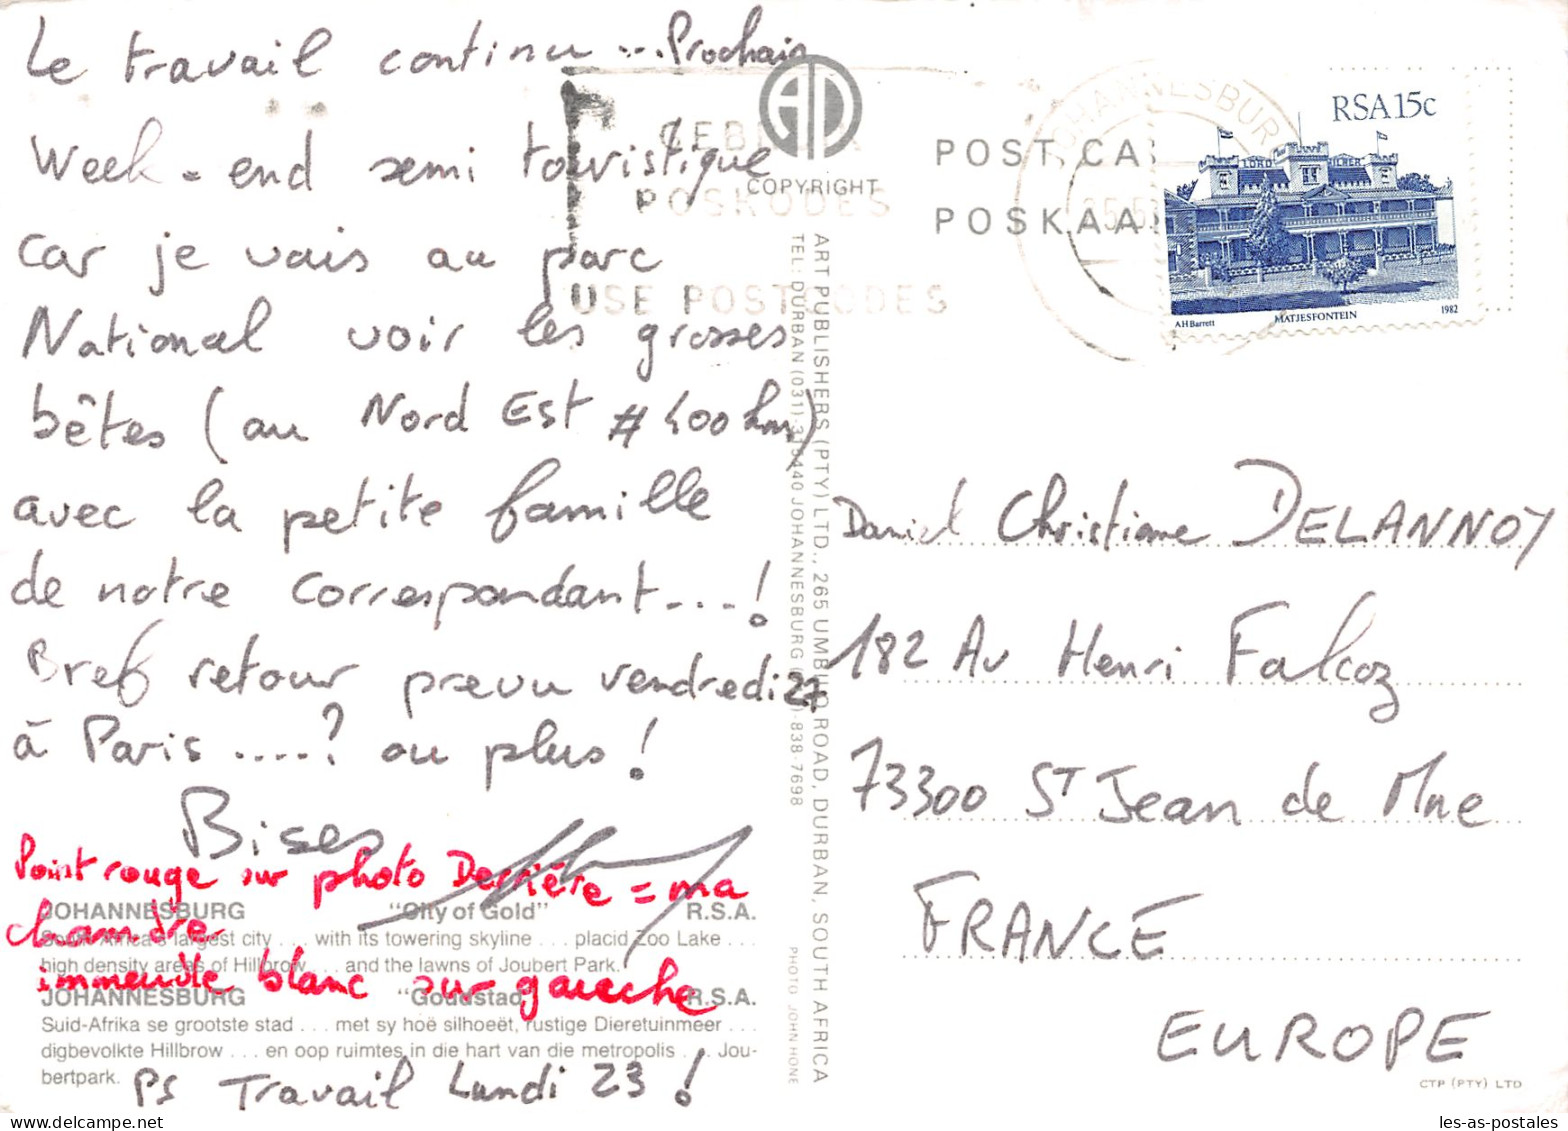 Le travail continu ... Prochain
Week-end semi touristique
car je vais au parc
National voir les grosses
bêtes (au Nord Est # 400 km)
avec la petite famille
de notre correspondant....!
Bref retour prevu vendredi 27
à Paris .....? ou plus!
Bises
Point rouge sur photo Derrière = ma
chambre
immeuble blanc sur gaueche
JOHANNESBURG "City of Gold" R.S.A.
South Africa's largest city ... with its towering skyline ... placid Zoo Lake ...
high density areas of Hillbrow ... and the lawns of Joubert Park.
JOHANNESBURG "Goudstad" R.S.A.
Suid-Afrika se grootste stad ... met sy hoë silhoeët, rustige Dieretuinmeer ...
digbevolkte Hillbrow ... en oop ruimtes in die hart van die metropolis ... Jou-
bertpark.
PS Travail Lundi 23!
COPYRIGHT
ART PUBLISHERS (PTY) LTD., 265 UMBILO ROAD, DURBAN, SOUTH AFRICA
TEL: DURBAN (031) 315440 JOHANNESBURG 838-7698
PHOTO JOHN HONE
POSKODES
USE POSTCODES
POST CA
POSKAA
JOHANNESBURG
RSA 15c
LORD MILNER
AH Barrett MATJESFONTEIN 1982
Daniel Christiane DELANNOY
182 Av Henri Falcoz
73300 ST Jean de Mne
FRANCE
EUROPE
CTP (PTY) LTD
les-as-postales